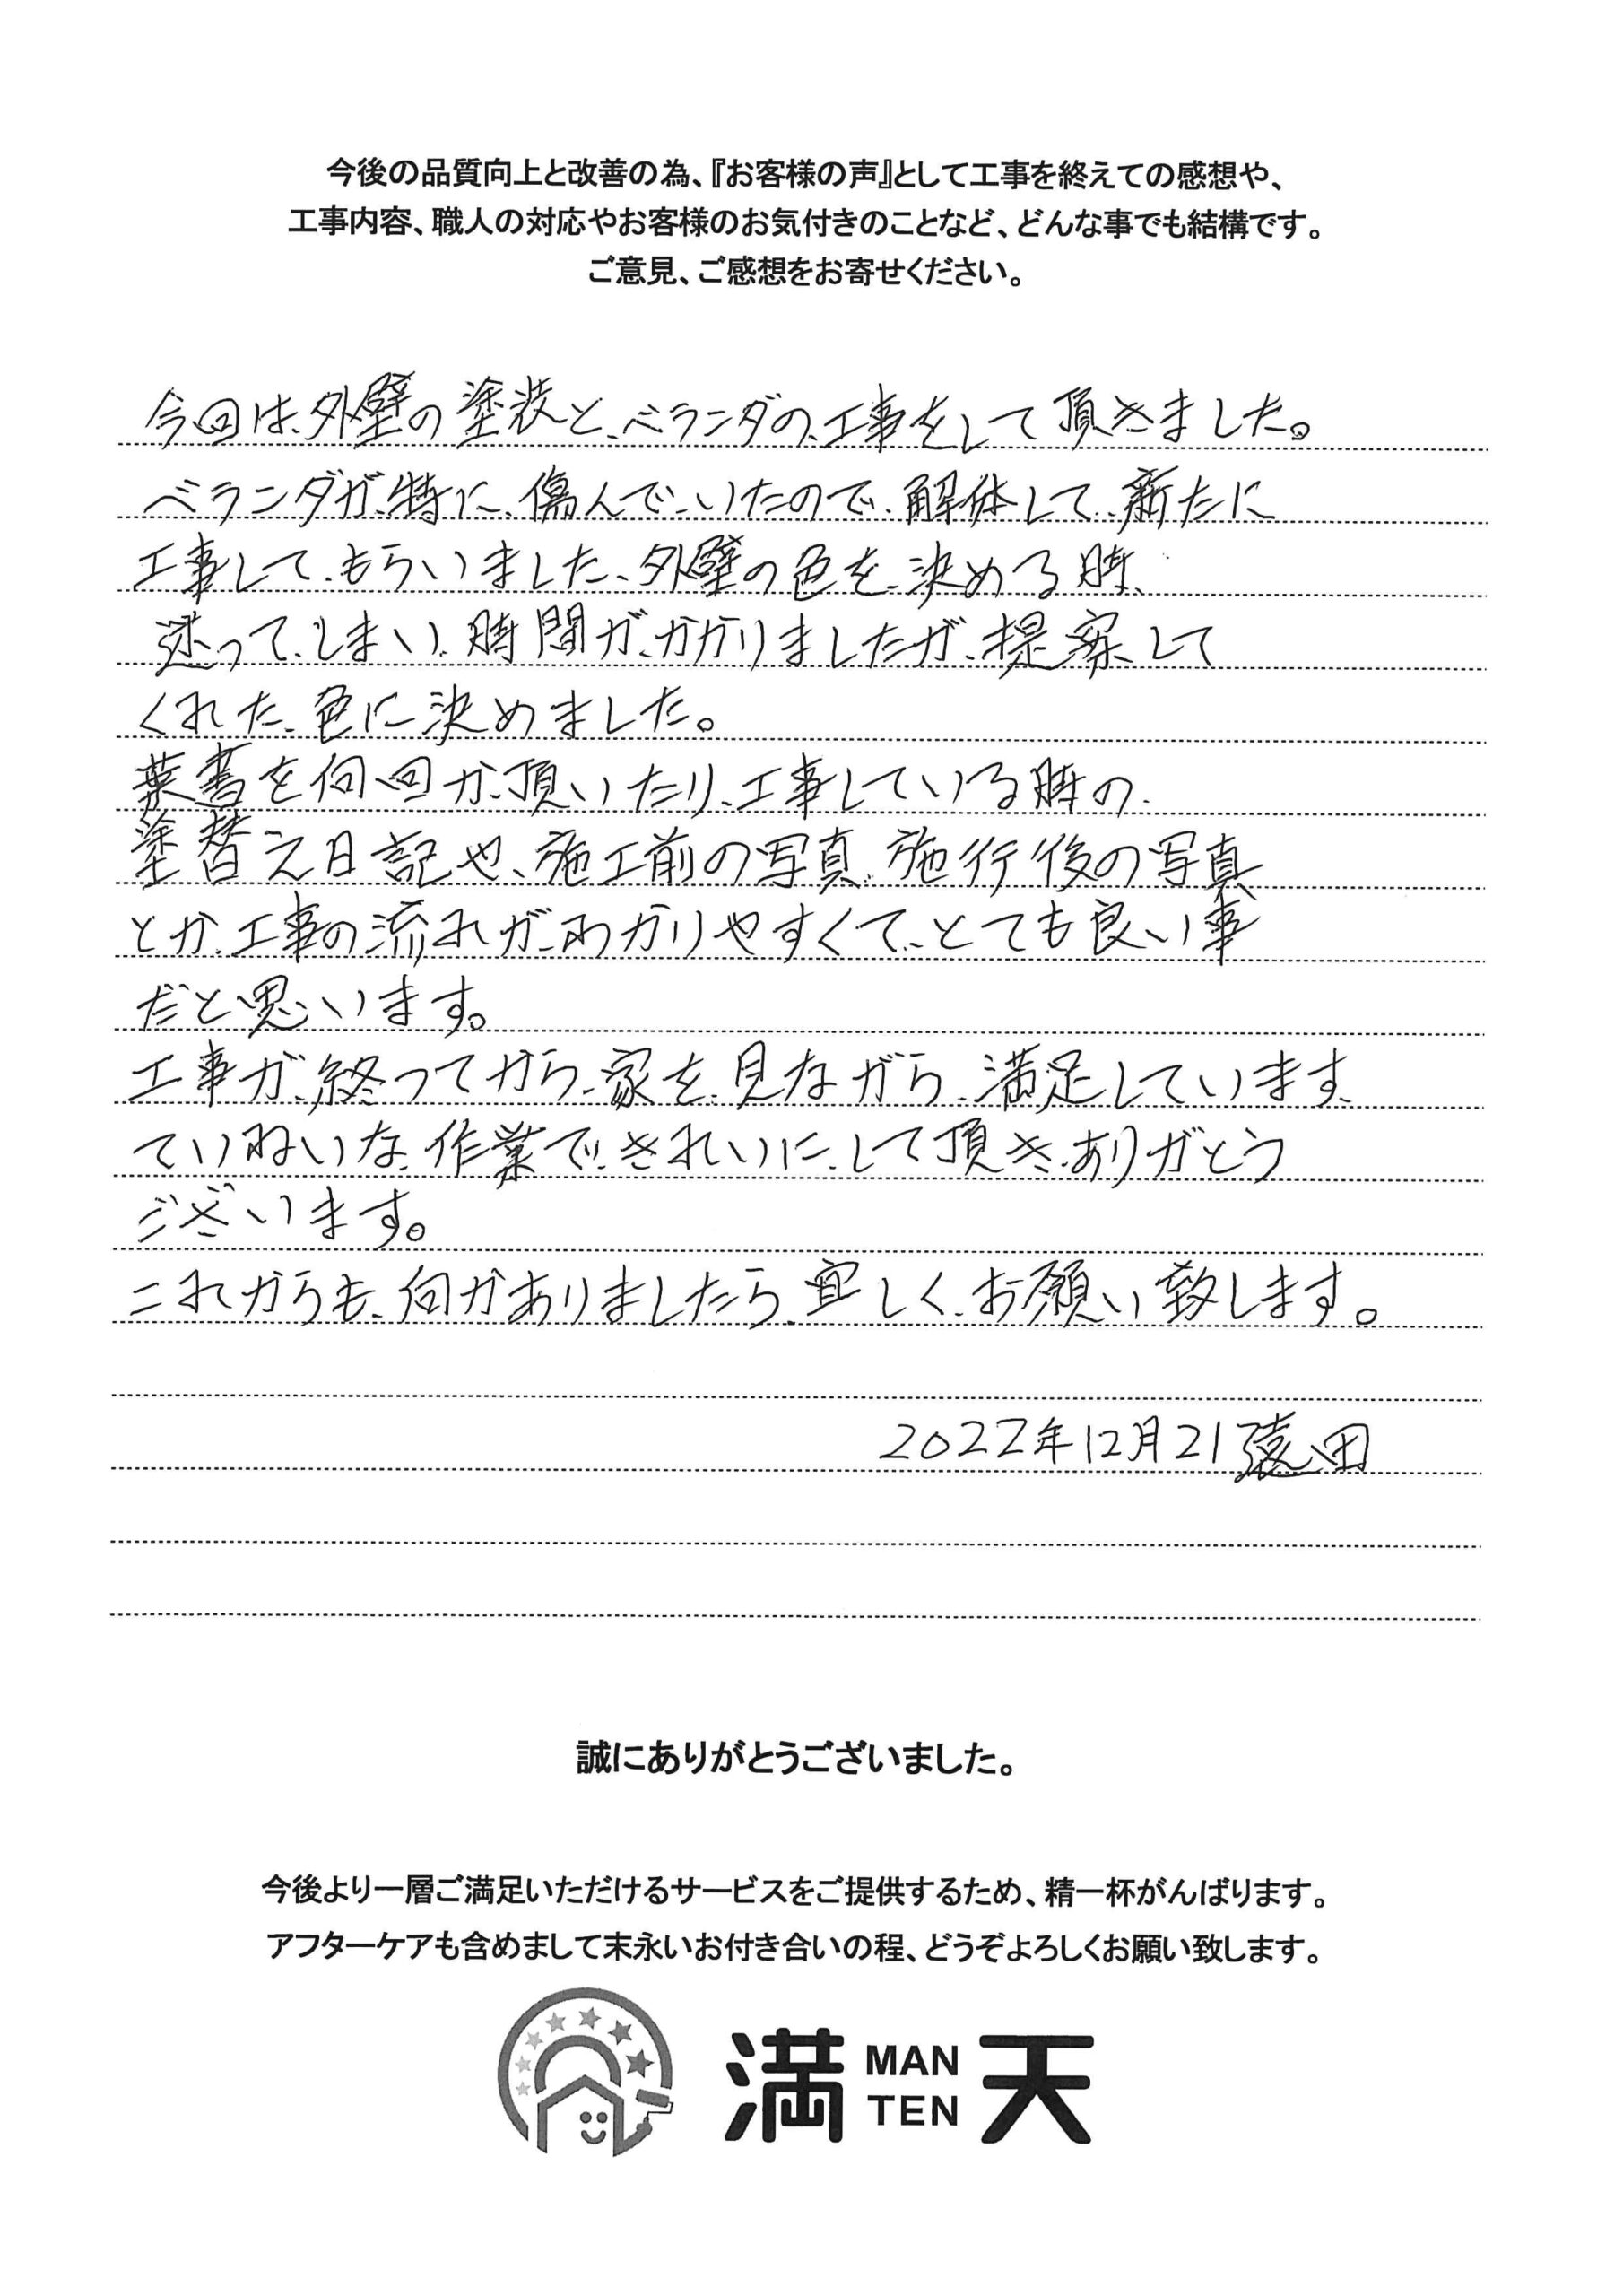 今後の品質向上と改善の為、『お客様の声』として工事を終えての感想や、
工事内容、職人の対応やお客様のお気付きのことなど、どんな事でも結構です。
ご意見、ご感想をお寄せください。
今回は、外壁の塗装と、ベランダの、工事をして頂きました。
ベランダが、特に、傷んで、いたので、解体して、新たに
工事して、もらいました、外壁の色を、決める時、
迷って、しまい、時間が、かかりましたが、提案、して
くれた、色に決めました。
葉書を何回か、頂いたり、工事している時の、
塗替え日記や、施工前の写真、施行後の写真
とか、工事の流れが、わかりやすくて、とても良い事
だと思います。
工事が、終ってから、家を、見ながら、満足しています、
ていねいな、作業で、きれいに、して頂き、ありがとう
ございます。
これからも、何かありましたら、宜しく、お願い致します。
2022年12月21 遠田
誠にありがとうございました。
今後より一層ご満足いただけるサービスをご提供するため、精一杯がんばります。
アフターケアも含めまして末永いお付き合いの程、どうぞよろしくお願い致します。
満 MAN TEN 天